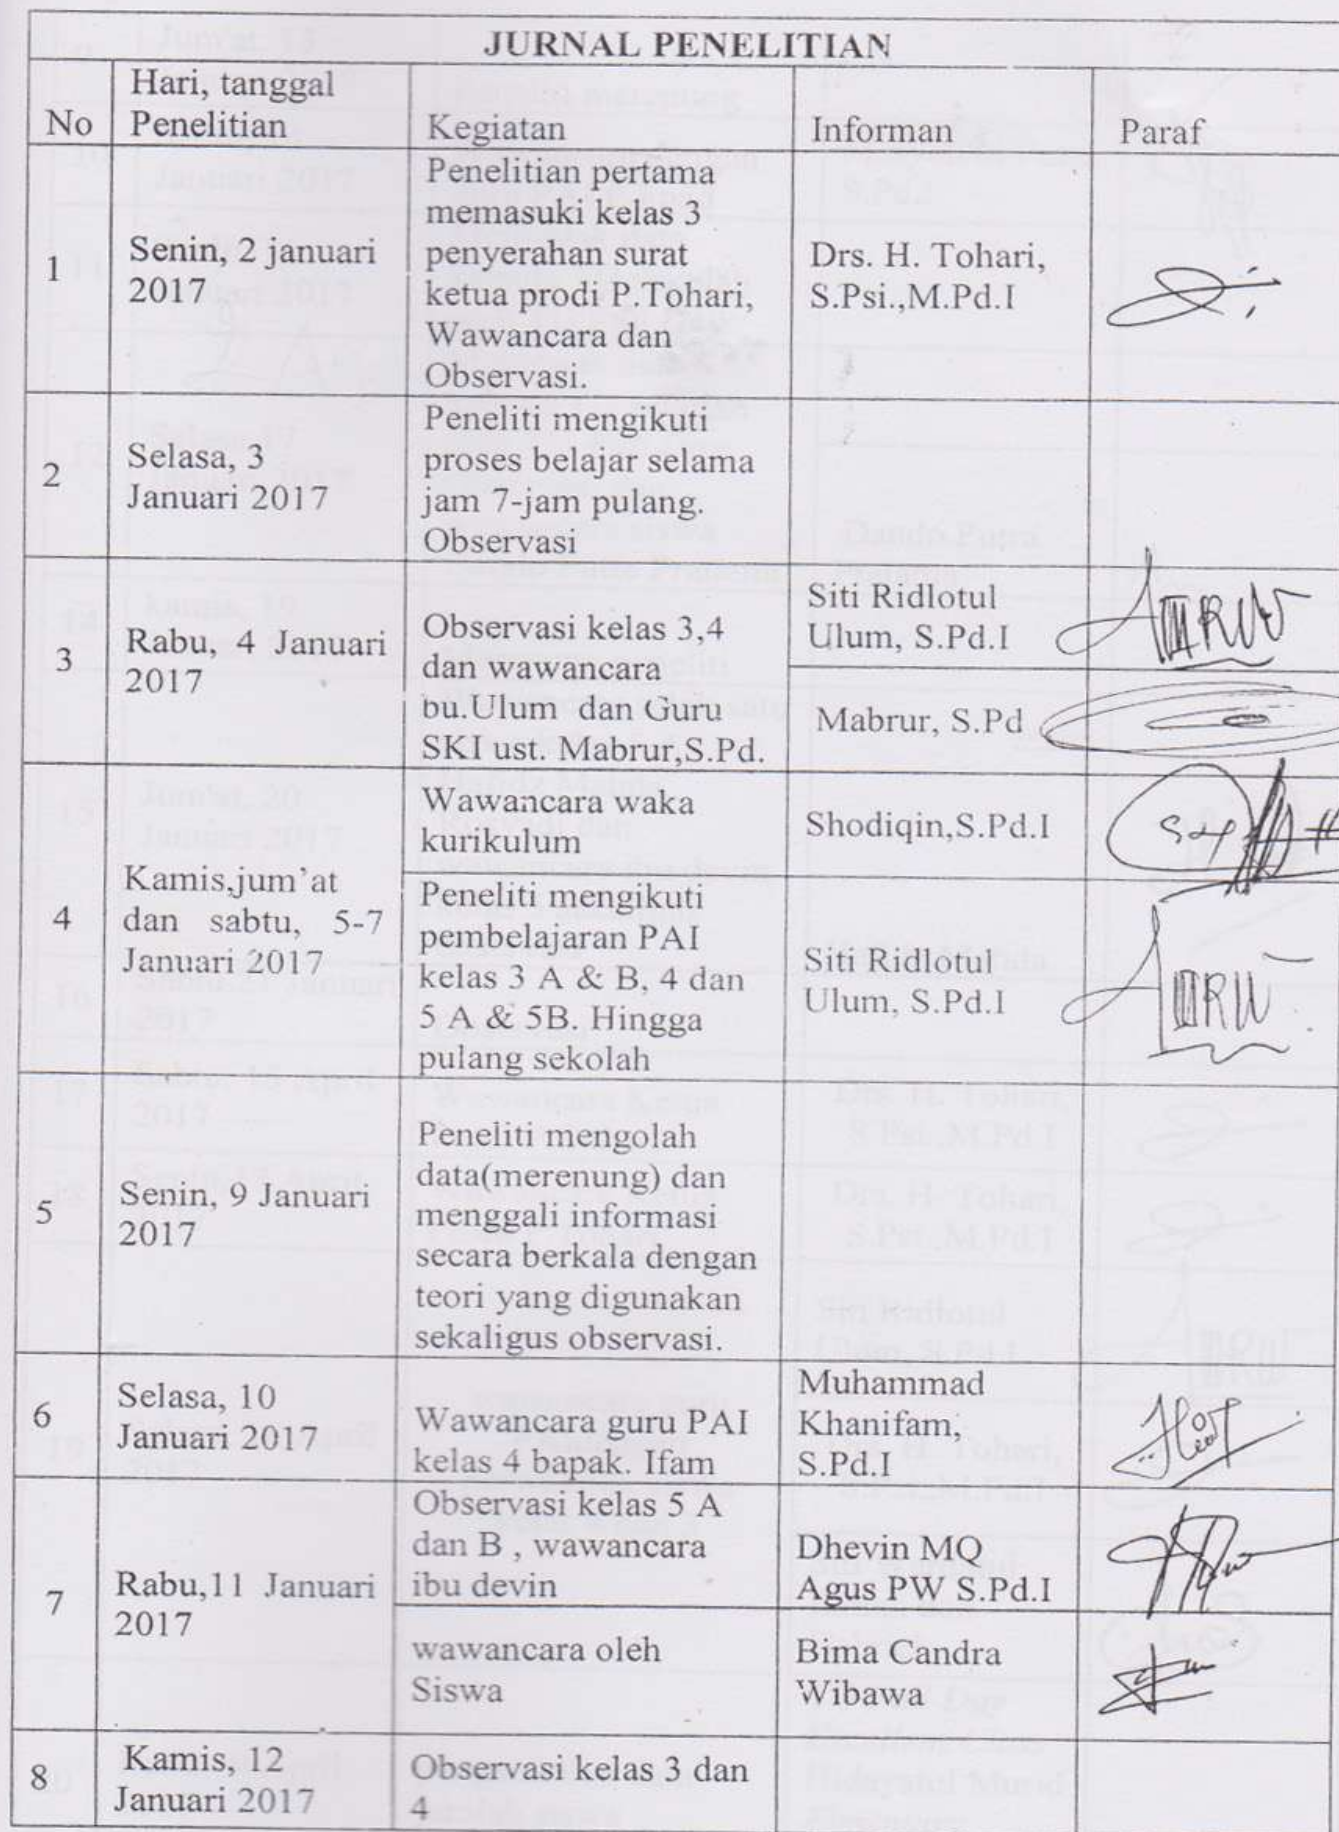 JURNAL PENELITIAN
No
Hari, tanggal
Penelitian
Kegiatan
Informan
Paraf
1
Senin, 2 januari
2017
Penelitian pertama
memasuki kelas 3
penyerahan surat
ketua prodi P.Tohari,
Wawancara dan
Observasi.
Drs. H. Tohari,
S.Psi.,M.Pd.I
2
Selasa, 3
Januari 2017
Peneliti mengikuti
proses belajar selama
jam 7-jam pulang.
Observasi
3
Rabu, 4 Januari
2017
Observasi kelas 3,4
dan wawancara
bu.Ulum dan Guru
SKI ust. Mabrur,S.Pd.
Siti Ridlotul
Ulum, S.Pd.I
Mabrur, S.Pd
4
Kamis,jum'at
dan sabtu, 5-7
Januari 2017
Wawancara waka
kurikulum
Shodiqin,S.Pd.I
Peneliti mengikuti
pembelajaran PAI
kelas 3 A & B, 4 dan
5 A & 5B. Hingga
pulang sekolah
Siti Ridlotul
Ulum, S.Pd.I
5
Senin, 9 Januari
2017
Peneliti mengolah
data(merenung) dan
menggali informasi
secara berkala dengan
teori yang digunakan
sekaligus observasi.
6
Selasa, 10
Januari 2017
Wawancara guru PAI
kelas 4 bapak. Ifam
Muhammad
Khanifam,
S.Pd.I
7
Rabu,11 Januari
2017
Observasi kelas 5 A
dan B , wawancara
ibu devin
Dhevin MQ
Agus PW S.Pd.I
wawancara oleh
Siswa
Bima Candra
Wibawa
8
Kamis, 12
Januari 2017
Observasi kelas 3 dan
4